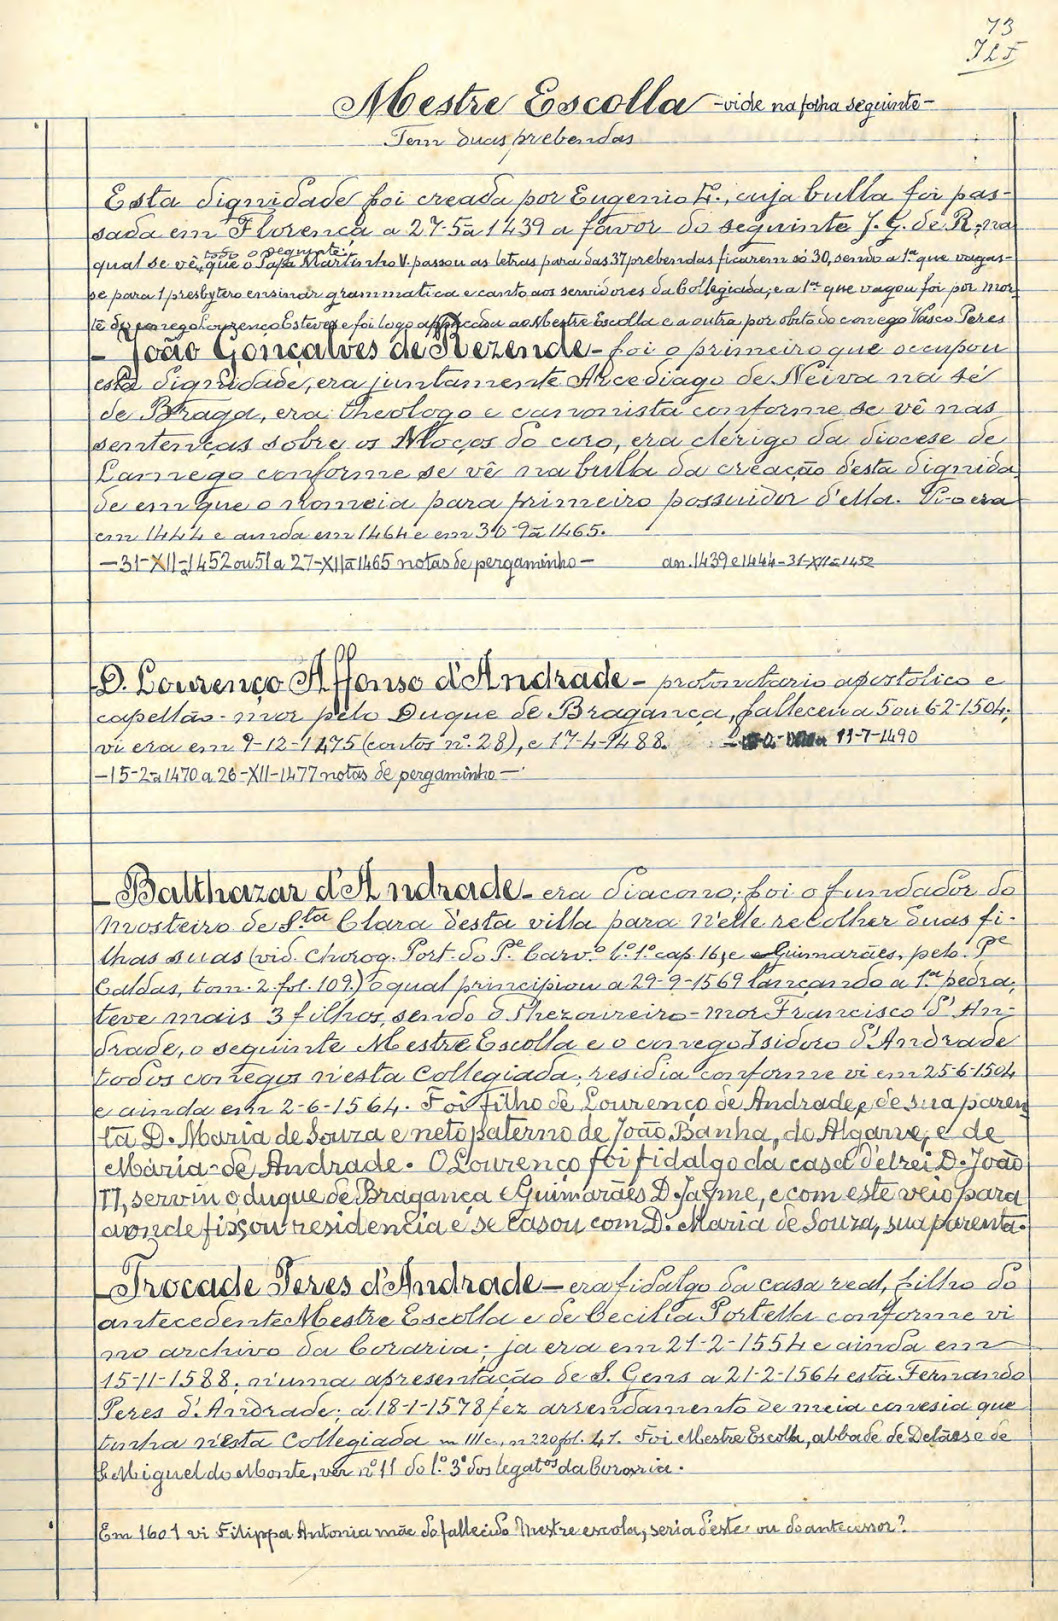 73
JLF
Mestre Escolla - vide na folha seguinte -
Tem duas prebendas
Esta dignidade foi creada por Eugenio 4º., cuja bulla foi pas-
sada em Florença a 27-5ª-1439 a favor do seguinte J. G. de R., na
todo o seguinte:
qual se vê, que o Papa Martinho V. passou as letras para das 37 prebendas ficarem só 30, sendo a 1ª que vagas-
se para 1 presbytero ensinar grammatica e canto aos servidores da Collegiada; e a 1ª que vagou foi por mor-
te do conego Lourenço Esteves e foi logo applicada ao Mestre Escolla e a outra por obito do conego Vasco Peres
- João Gonçalves de Rezende - foi o primeiro que occupou
esta dignidade, era juntamente Arcediago de Neiva na sé
de Braga, era theologo e canonista conforme se vê nas
sentenças sobre os Moços do coro, era clerigo da diocese de
Lamego conforme se vê na bulla da creação d'esta dignida
de em que o nomeia para primeiro possuidor d'ella. Vi-o era
em 1444 e ainda em 1464 e em 30-9ª-1465.
- 31-XII-1452 ou 51 a 27-XIIª1465 notas de pergaminho - an. 1439 e 1444-31-XII-1452
D. Lourenço Affonso d'Andrade - protonotario apostolico e
capellão-mor pelo Duque de Bragança, falleceu a 5 ou 6-2-1504;
vi era em 9-12-1475 (contos nº. 28), e 17-4-1488. - 11-7-1490
- 15-2ª1470 a 26-XII-1477 notas de pergaminho -
- Balthazar d'Andrade - era diacono; foi o fundador do
mosteiro de Sta Clara d'esta villa para n'elle recolher duas fi-
lhas suas (vid. Chorog. Port. do Pe Carv.º l.º 1.º cap. 16, e Guimarães, pelo Pe
Caldas, tom. 2. fol. 109.) o qual principiou a 29-9-1569 lançando a 1ª pedra;
teve mais 3 filhos, sendo o Thezoureiro-mor Francisco d'An-
drade, o seguinte Mestre Escolla e o conego Isidoro d'Andrade
todos conegos n'esta Collegiada; residia conforme vi em 25-6-1504
e ainda em 2-6-1564. Foi filho de Lourenço de Andrade, e de sua paren
ta D. Maria de Souza e neto paterno de João Banha, do Algarve, e de
Maria de Andrade. O Lourenço foi fidalgo da casa d'elrei D. João
II, serviu o duque de Bragança e Guimarães D. Jayme, e com este veio para
aonde fixou residencia e se casou com D. Maria de Souza, sua parenta.
- Trocade Peres d'Andrade - era fidalgo da casa real, filho do
antecedente Mestre Escolla e de Cecilia Portella conforme vi
no archivo da Coraria; ja era em 21-2-1554 e ainda em
15-11-1588; n'uma apresentação de S. Gens a 21-2-1564 está Fernando
Peres d'Andrade; a 18-1-1578 fez arrendamento de meia conesia que
tinha n'esta Collegiada m IIIc, n 220 fol. 47. Foi Mestre Escolla, abbade de Delães e de
S. Miguel do Monte, ver nº 11 do l.º 3º dos legatos da Coraria.
Em 1601 vi Filippa Antonia mãe do fallecido Mestre escola, seria d'este ou do antecessor?